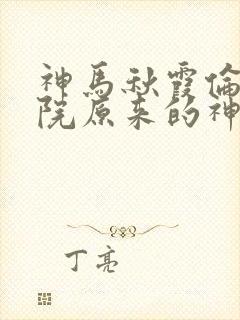 神馬秋霞倫
院原来的神
丁亮